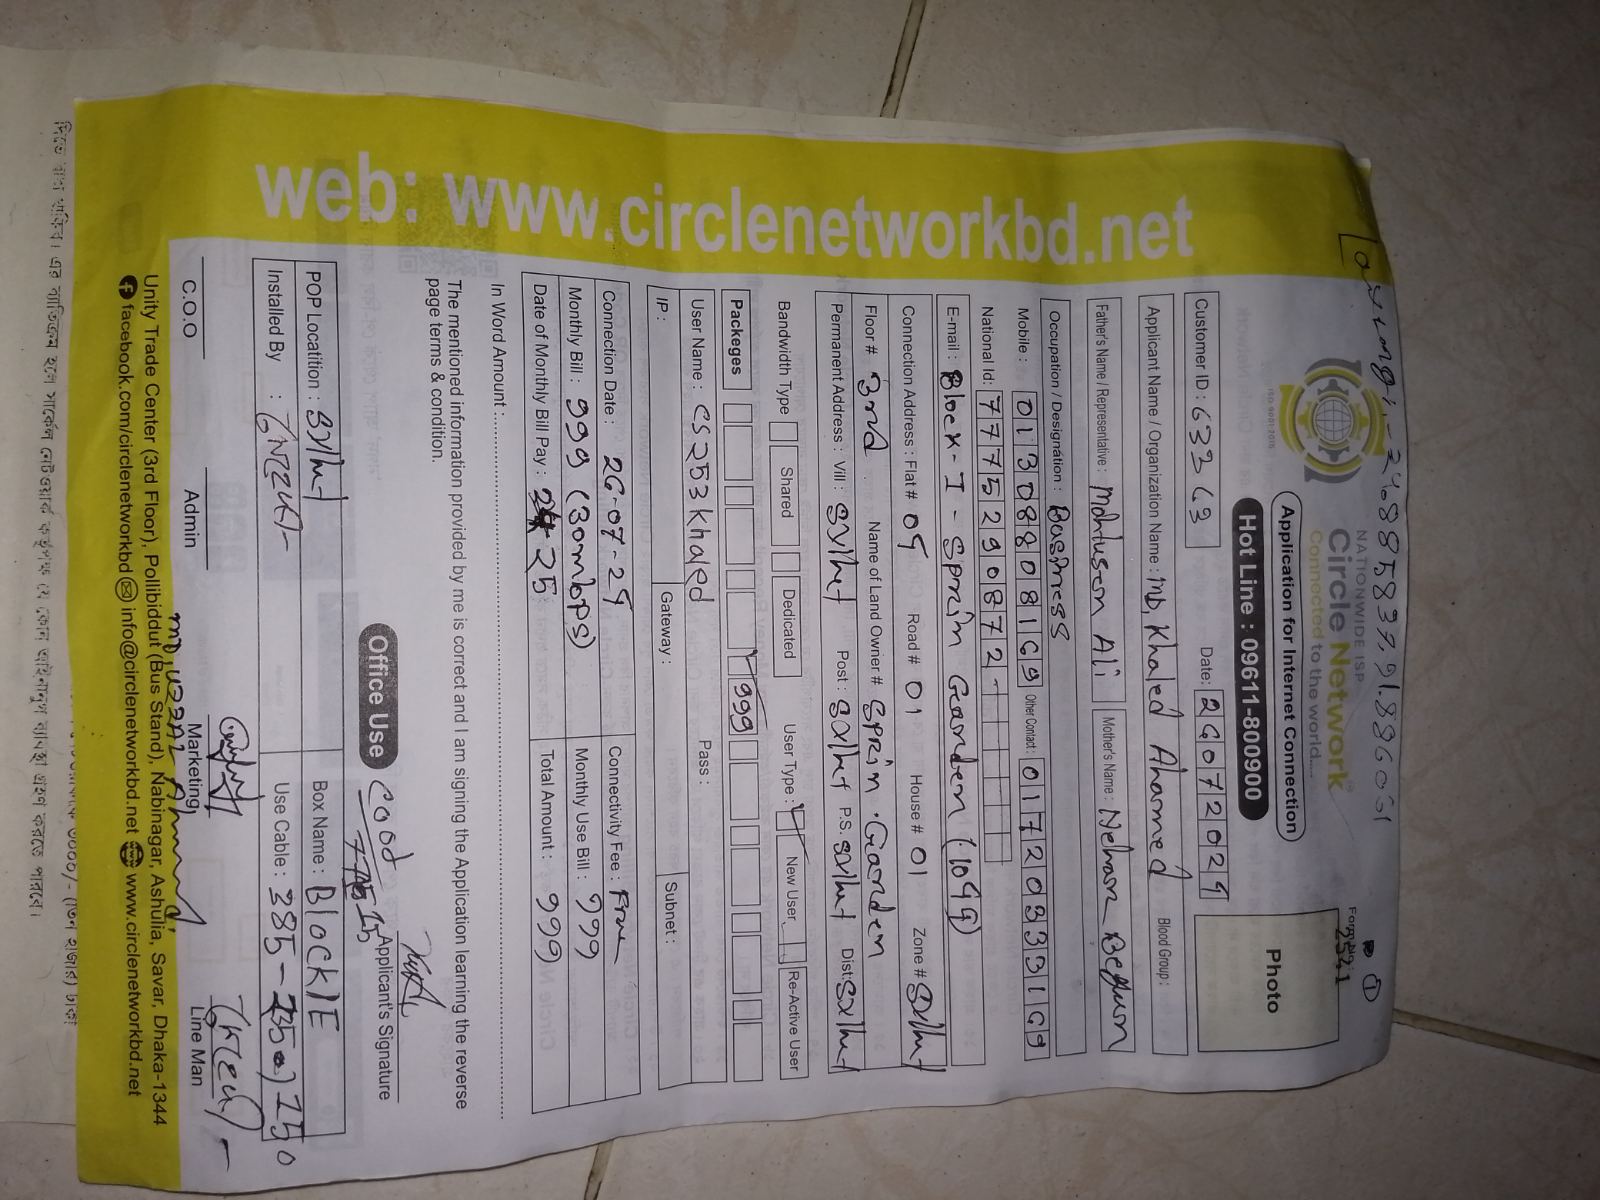 Lat Long:- 24.8858379,91.886051
NATIONWIDE ISP
Circle Network
Connected to the world.....
ISO 9001:2015
Application for Internet Connection
Hot Line : 09611-800900
2541
Photo
Customer ID : 63263
Date: 26072024
Applicant Name / Organization Name : Md, Khaled Ahamed
Blood Group :
Father's Name / Representative : Mohtusen Ali
Mother's Name : Nehar Begum
Occupation / Designation : Busines
Mobile : 01308808169
Other Contact : 01720333169
National Id: 7775290872
E-mail : Block-I - Sprin Gearden (1099)
Connection Address : Flat # 04 Road # 01 House # 01 Zone # Sylhet
Floor # 3rd Name of Land Owner # Sprin Gearden
Permanent Address : Vill : Sylhet Post : Sylhet P.S. Sylhet Dist: Sylhet
Bandwidth Type Shared Dedicated User Type : New User Re-Active User
Packeges 999
User Name : CS253Khaled Pass :
IP : Gateway : Subnet :
Connection Date : 26-07-24 Connectivity Fee : Free
Monthly Bill : 999 (30mbps) Monthly Use Bill : 999
Date of Monthly Bill Pay : 25 Total Amount : 999
In Word Amount :
The mentioned information provided by me is correct and I am signing the Application learning the reverse
page terms & condition.
Applicant's Signature
Office Use
POP Locatition : Sylhet Box Name : Block I E
Installed By : Use Cable : 385-
C.O.O Admin Marketing Line Man
Unity Trade Center (3rd Floor), Pollibiddut (Bus Stand), Nabinagar, Ashulia, Savar, Dhaka-1344
facebook.com/circlenetworkbd info@circlenetworkbd.net www.circlenetworkbd.net
web: www.circlenetworkbd.net